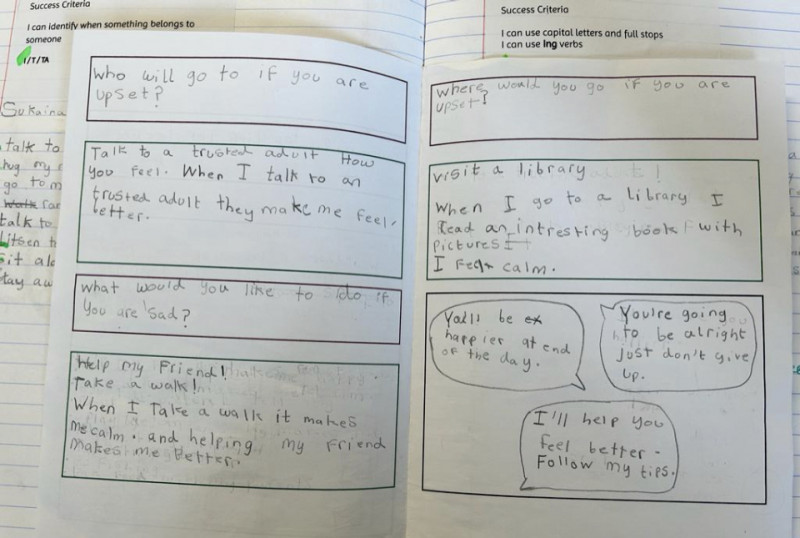 Success Criteria
I can identify when something belongs to
someone
I/T/TA
Sukaina
talk to
hug my
go to m
Walk far
talk to
Litsen
sit alo
stay aw
who will go to if you are
upset?
Talk to a trusted adult How
you feel. When I talk to an
trusted adult they make me feel.
better.
what would you like to do if
you are sad?
Help my Friend!
Take a walk!
When I Take a walk it makes
me calm. and helping my friend
makes me better.
Success Criteria
I can use capital letters and full stops
I can use ing verbs
where would you go if you are
upset?
visit a library
when I go to a library I
Read an intresting book with
pictures I
I feel calm.
You'll be ex
happier at end
of the day.
You're going
to be alright
just don't give
up.
I'll help you
feel better.
Follow my tips.